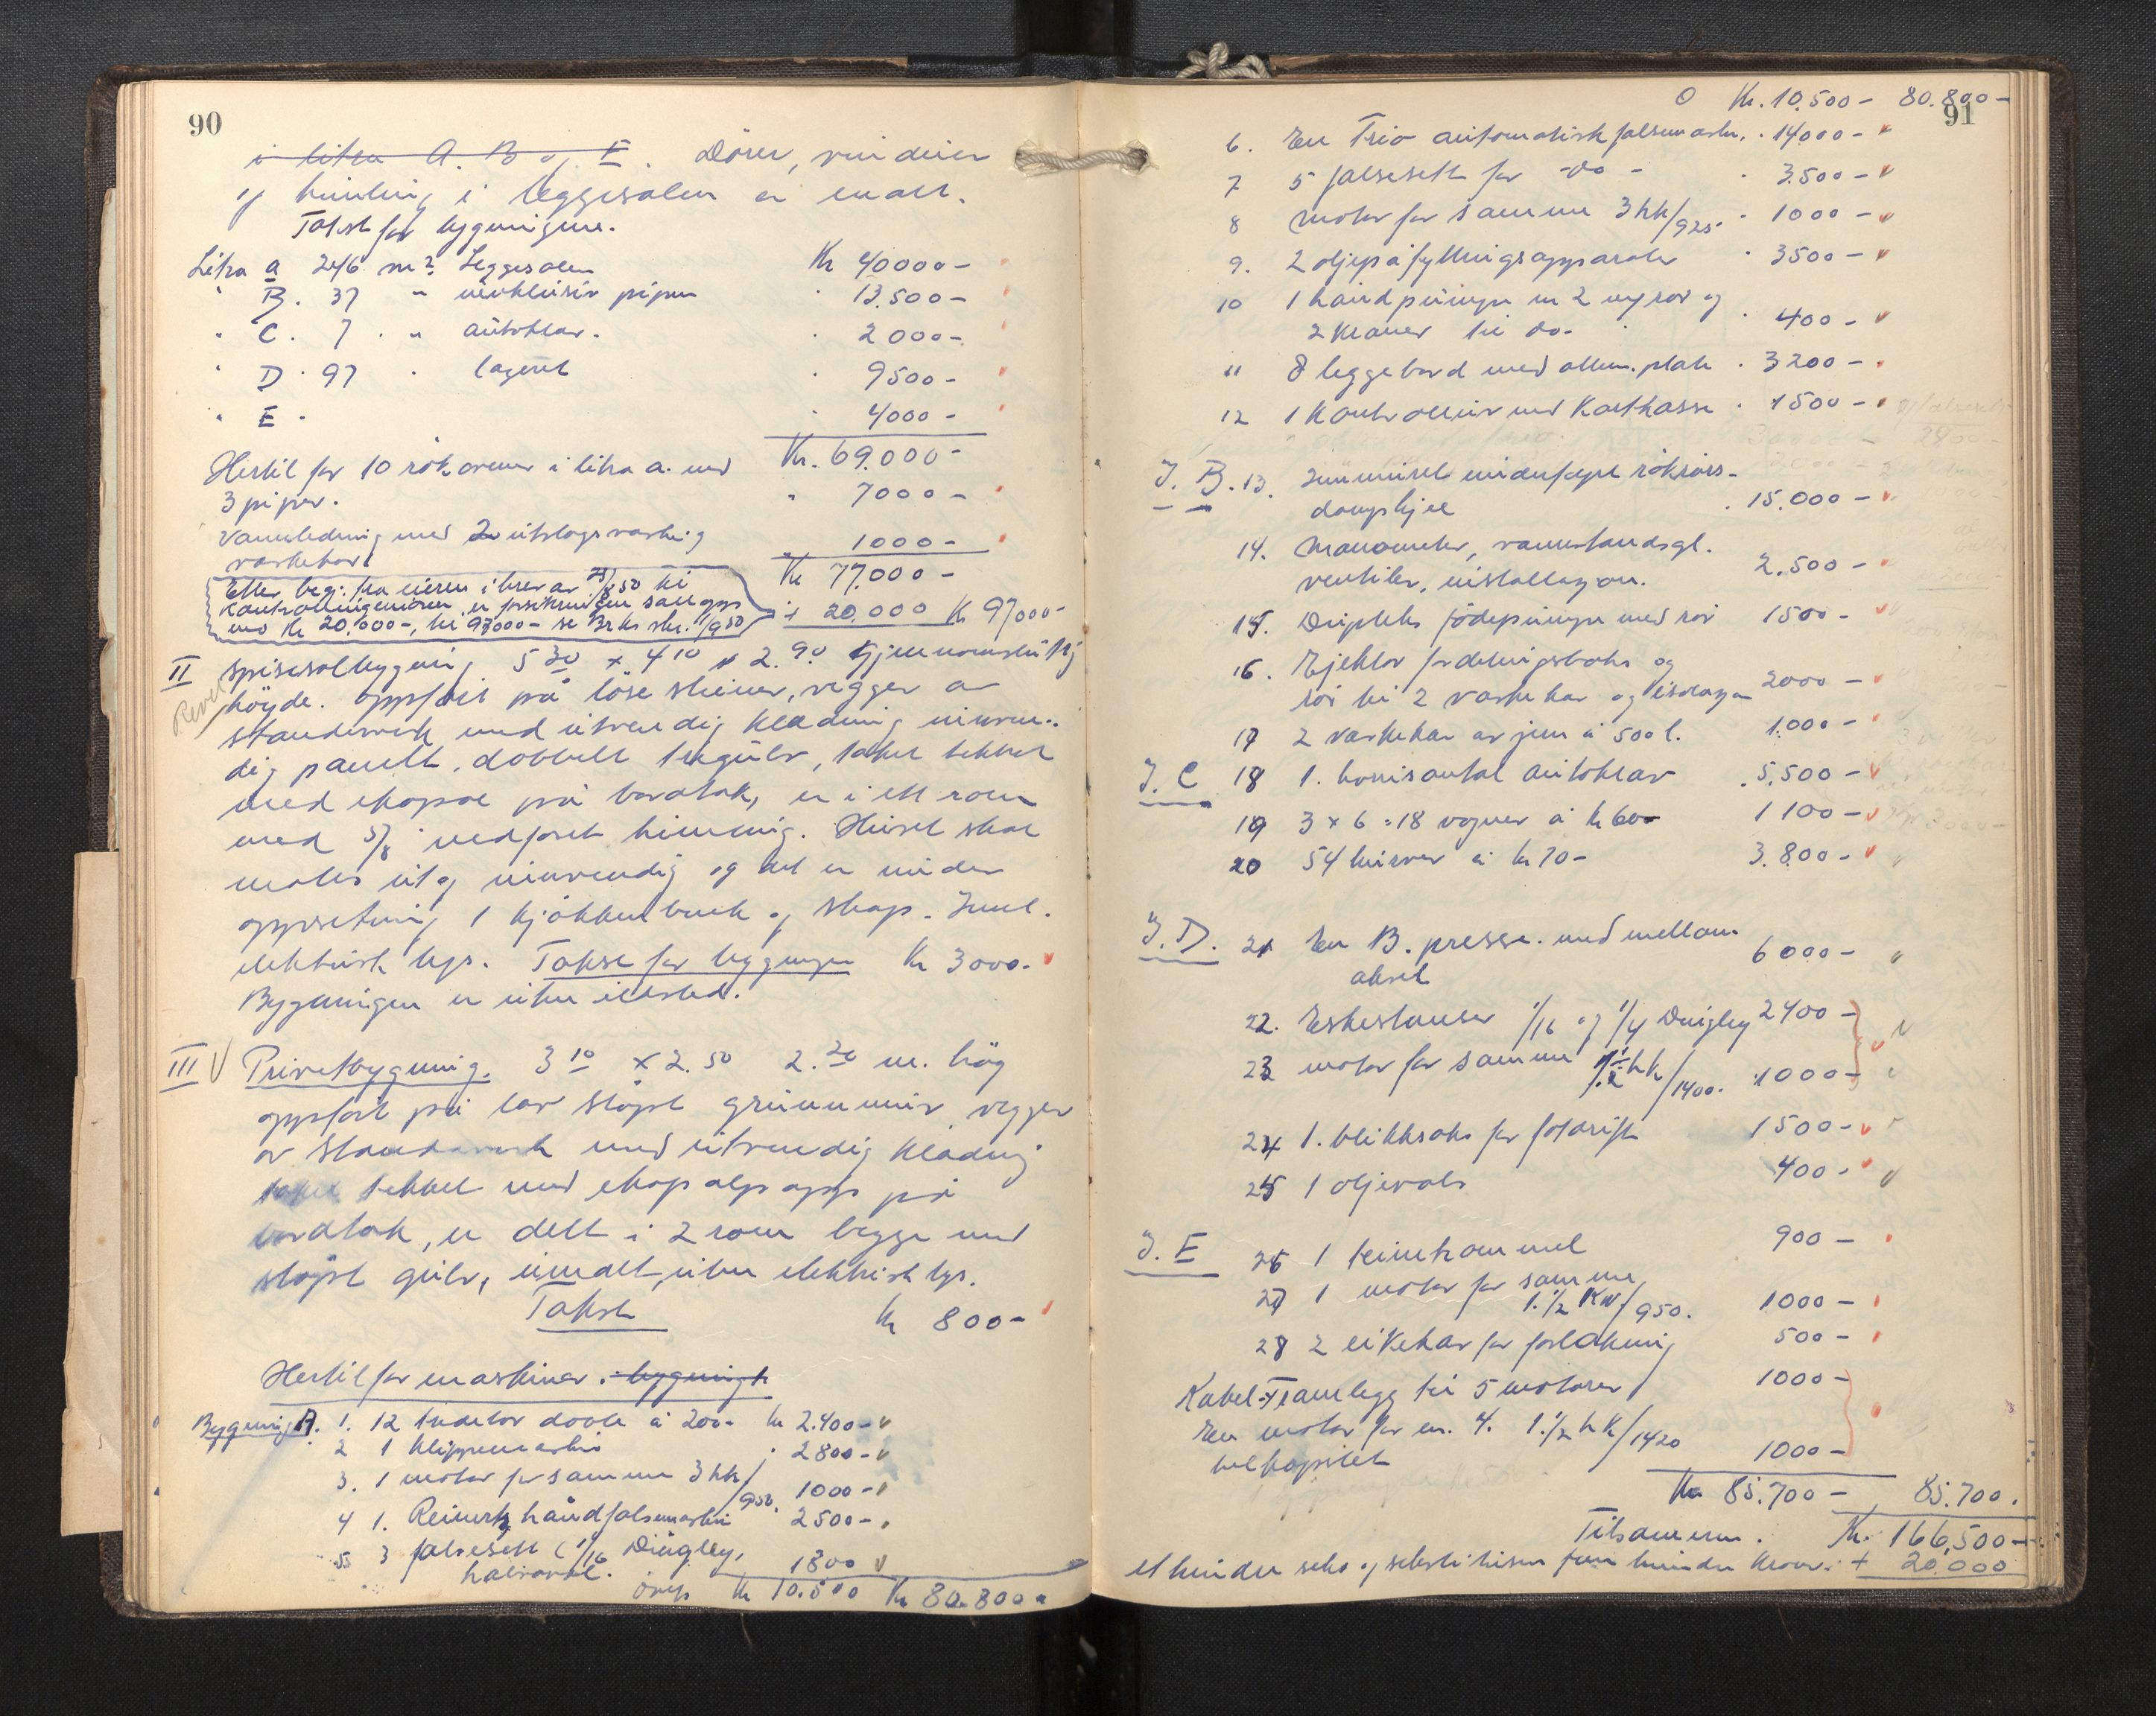 90
i litra A. B og E. Dører, vinduer
og himling i leggesalen er malt.
Takst for bygningene.
Litra a 246 m² Leggesalen Kr 40000-
" B. 37 " inklusiv pipen " 13.500-
" C. 7 . " autoklav. " 2000-
" D. 97 " lageret " 9500-
" E - " 4000-
Hertil for 10 rökovner i litra a. med Kr. 69.000-
3 piper. " 7000-
Vannledning med 2 utslagsvask og
vaskekar 1000-
Kr 77.000-
Etter beg: fra eieren i brev av 25/8 50 til
Kontrollingeniören er forsikringen satt opp
med Kr 20.000-, til 97000- se Brks skr. 1/9 50
+ 20.000 Kr 97000-
II Spisesalbygning 5 30 x 4 10 x 2. 90 gjennomsnittlig
höyde. oppfört på löse steiner, vegger av
standerverk med utvendig kledning innven-
dig panelt, dobbelt tregulv, taket tekket
med ekopal på bordtak, er i ett rom
med 5/8" nedforet himling. Huset skal
males ut og innvendig og det er under
oppsetning 1 kjökkenbenk og skap. Innl.
elektrisk lys. Takst for bygningen Kr 3000.-
Bygningen er uten ildsted.
III V Privetbygning. 3 10 x 2.50 2. 20 m. høg
oppfört på lav stöpt grunnmur, vegger
av standerverk med utvendig kledning
taket tekket med ekopalpapp på
bordtak, er delt i 2 rom begge med
stöpt gulv, umalt, uten elektrisk lys.
Takst Kr 800-
Hertil for maskiner. bygningt
Bygning A. 1. 12 tredelor doble á 200- kr 2.400-
2 1 Klippemaskin " 2800-
3. 1 motor for samme 3 hk/950. 1000-
4 1. Reinertz håndfalsemaskin 2500-
5 3 falsesett (1/16 Dingley, 1800
halvoval.
Overf Kr 10.500 Kr 80.800-
91
O Kr. 10.500- 80.800-
6. En Trio automatisk falsemaskn. " 14000-
7 5 falsesett for -do- " 3.500-
8 motor for samme 3 hk/925. " 1000-
9. 2 oljepåfyllningsapparater " 3500-
10 1 håndpumpe m 2 mg rör og
2 kraner til do- " 400-
11 8 leggebord med alum. plate " 3200-
12 1 Kontrollur med Kortkasse " 1500-
I. B. 13. Innmuret underfyrt rökrörs-
dampkjel " 15.000-
14. Manometer, vannstandsgl.
ventiler, installasjon. 2.500-
15. Dupleks födepumpe med rör 1500-
16. Ejektor fordelingsboks og
rör til 2 vaskekar og isolasjon 2000-
17 2 vaskekar av jern á 500 l. 1.000-
I. C 18 1. horisontal autoklav 5.500-
19 3 x 6 = 18 vogner á kr 60- 1 100-
20 54 kurver á kr 70- 3.800-
I. D. 21 En B. presse. med mellom
aksel 6000-
22. Eskestanser 1/16 og 1/4 Dingley 2400-
23 motor for samme 1 1/2 hk/1400. 1000-
24 1. blikksaks for fotdrift 1500-
25 1 oljevals 400-
I. E 26 1 timetrommel 900-
27 1 motor for samme
1. 1/2 KW/950. 1000-
28 2 eikekar for forlakning 500-
Kabel-Framlegg til 5 motorer 1000-
En motor for m. 4. 1. 1/2 hk/1420
1000-
Kr 85.700- 85.700.
Tilsammen. Kr. 166,500-
et hundre seks og sekstitusen fem hundre kroner. + 20.000